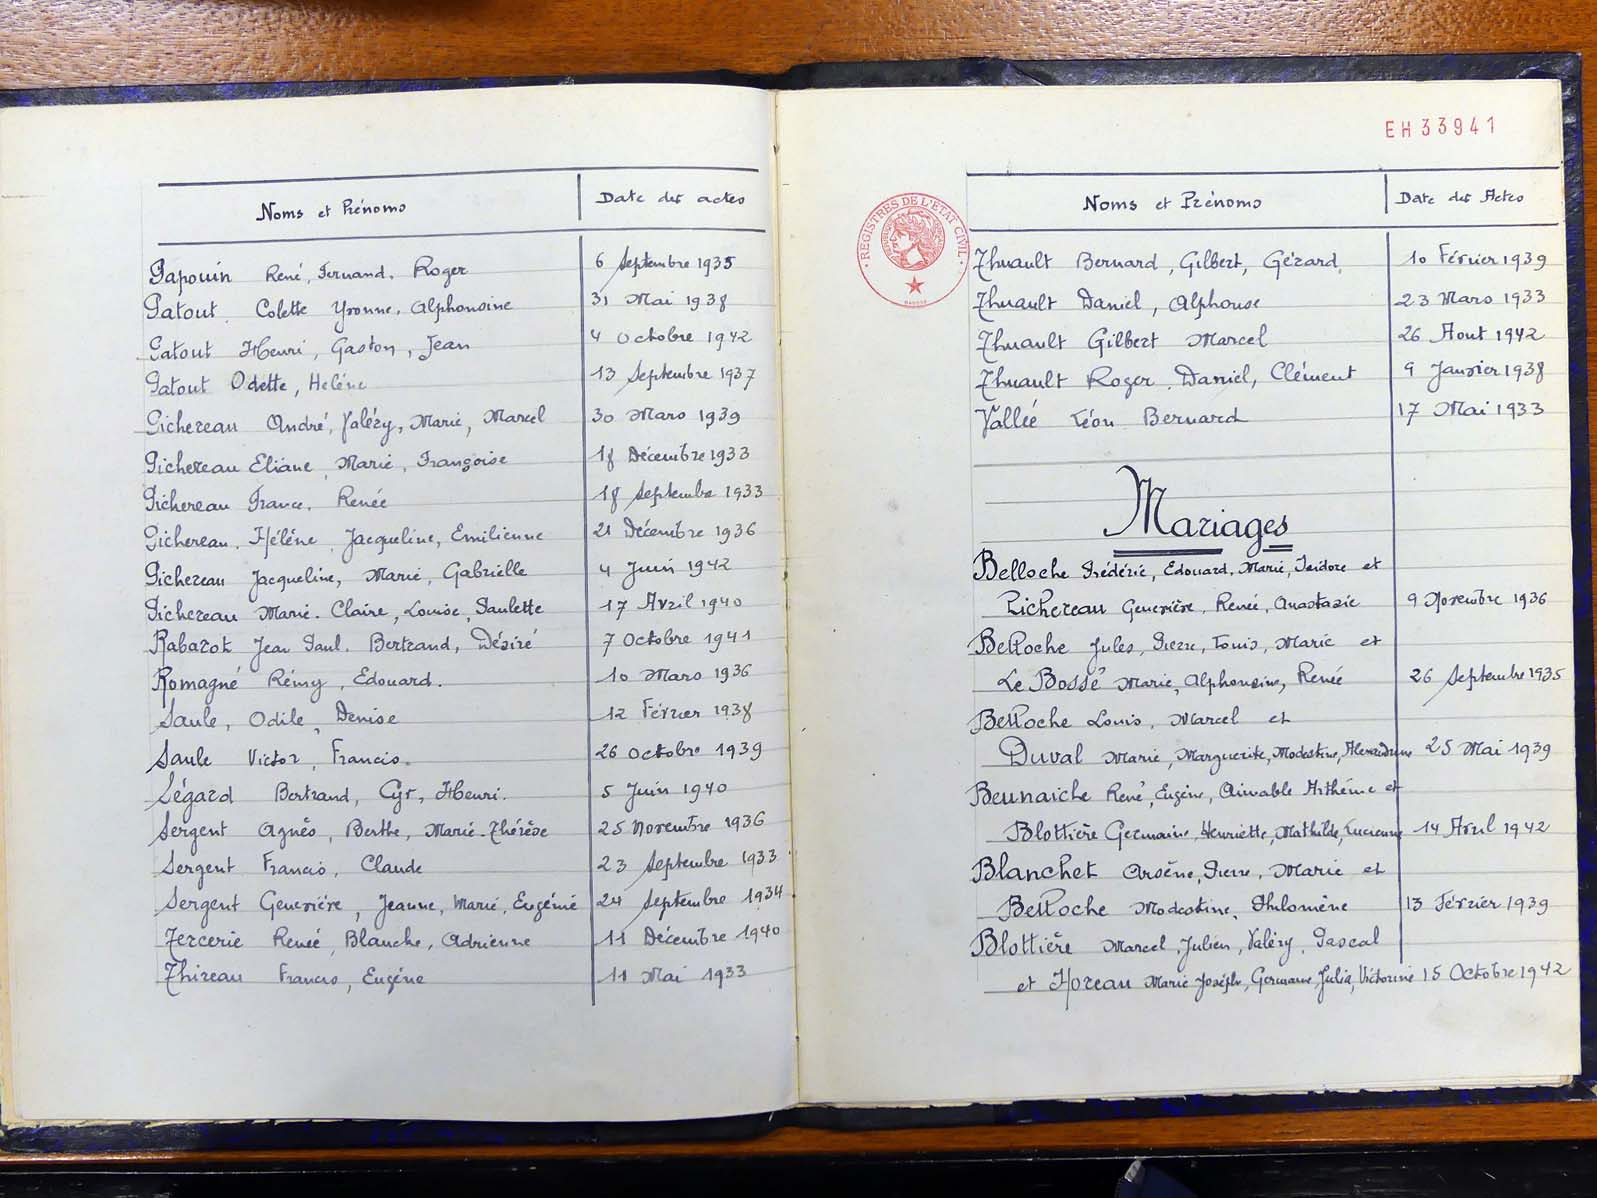 Noms et Prénoms Date des actes
Papouin René, Fernand, Roger 6 Septembre 1935
Patout Colette Yvonne, Alphonsine 31 Mai 1938
Patout Henri, Gaston, Jean 4 Octobre 1942
Patout Odette, Heléne 13 Septembre 1937
Pichereau André, Valéry, Marie, Marcel 30 Mars 1939
Pichereau Eliane Marie, Françoise 18 Décembre 1933
Pichereau France, Renée 18 Septembre 1933
Pichereau, Hélène, Jacqueline, Emilienne 21 Décembre 1936
Pichereau Jacqueline, Marie, Gabrielle 4 Juin 1942
Pichereau Marie-Claire, Louise, Paulette 17 Avril 1940
Rabarot Jean Paul, Bertrand, Désiré 7 Octobre 1941
Romagné Rémy, Edouard. 10 Mars 1936
Saule, Odile, Denise 12 Février 1938
Saule Victor, Francis. 26 Octobre 1939
Ségard Bertrand, Cyr, Henri. 5 Juin 1940
Sergent Agnès, Berthe, Marie-Thérèse 25 Novembre 1936
Sergent Francis, Claude 23 Septembre 1933
Sergent Geneviève, Jeanne, Marie, Eugénie 24 Septembre 1934
Tercerie Renée, Blanche, Adrienne 11 Décembre 1940
Thireau Francis, Eugène 11 Mai 1933
EH33941
REGISTRES DE L'ETAT CIVIL
Noms et Prénoms Date des Actes
Thuault Bernard, Gilbert, Gérard, 10 Février 1939
Thuault Daniel, Alphonse 23 Mars 1933
Thuault Gilbert Marcel 26 Aout 1942
Thuault Roger, Daniel, Clément 9 Janvier 1938
Vallée Léon Bernard 17 Mai 1933
Mariages
Belloche Frédéric, Edouard, Marie, Isidore et
Pichereau Geneviève, Renée, Anastasie 9 Novembre 1936
Belloche Jules, Pierre, Louis, Marie et
Le Bossé Marie, Alphonsine, Renée 26 Septembre 1935
Belloche Louis, Marcel et
Duval Marie, Marguerite, Modestine, Alexandrine 25 Mai 1939
Beunaiche René, Eugène, Aimable Arthème et
Blottière Germaine, Henriette, Mathilde, Lucienne 14 Avril 1942
Blanchet Arsène, Pierre, Marie et
Belloche Modestine, Philomène 13 Février 1939
Blottière Marcel, Julien, Valéry, Pascal
et Horeau Marie Josèphe, Germaine, Julia, Victorine 15 Octobre 1942